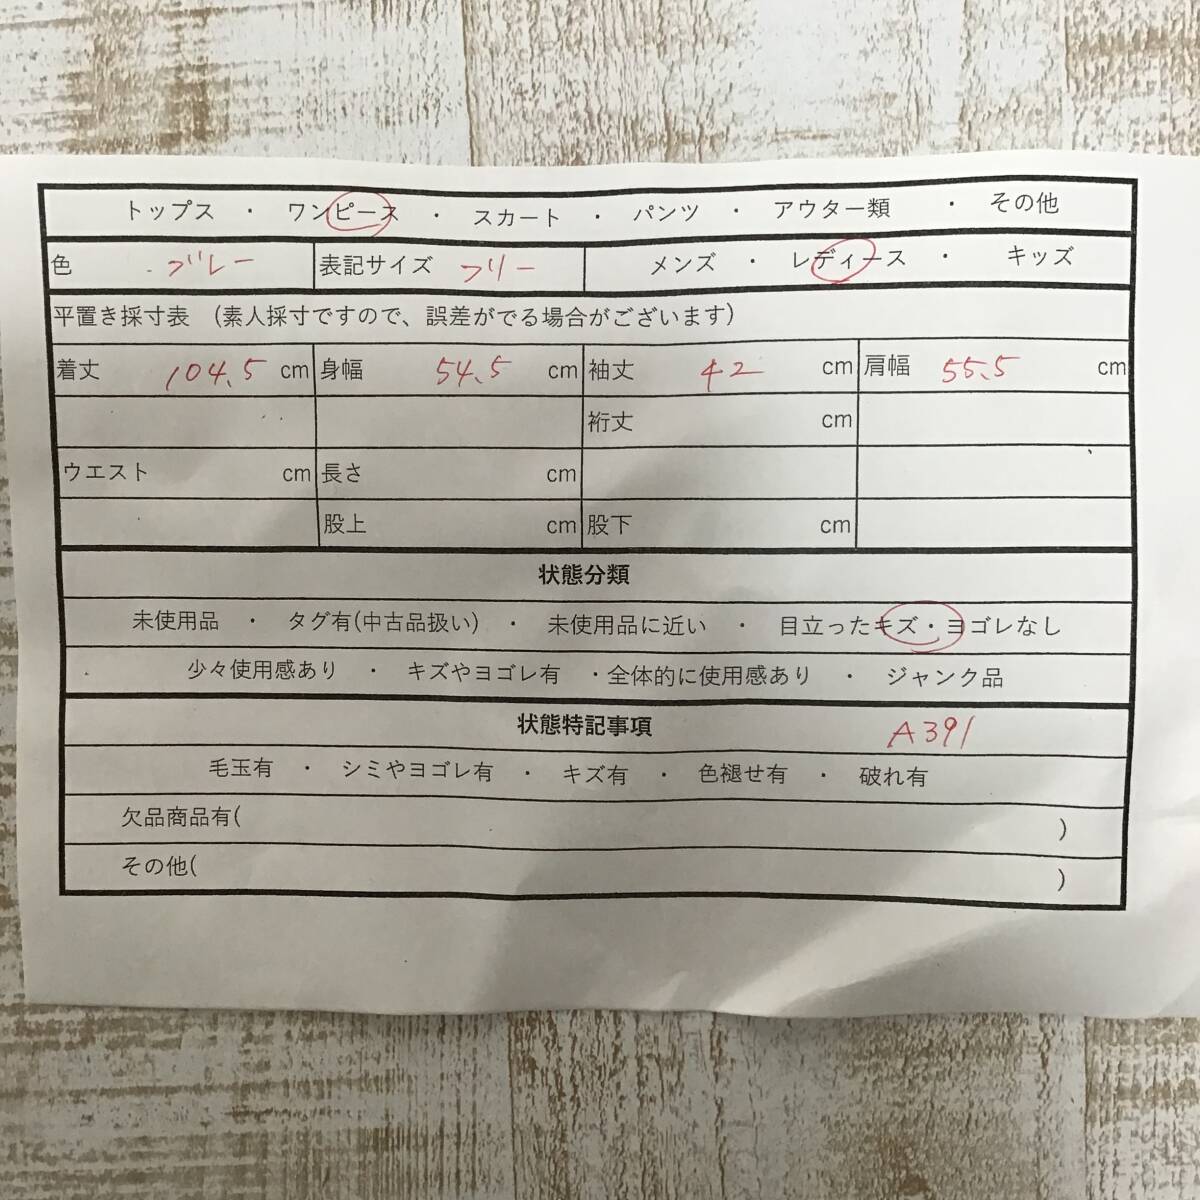 トップス ・ ワンピース ・ スカート ・ パンツ ・ アウター類 ・ その他
色 グレー 表記サイズ フリー メンズ ・ レディース ・ キッズ
平置き採寸表 (素人採寸ですので、誤差がでる場合がございます)
着丈 104.5 cm 身幅 54.5 cm 袖丈 42 cm 肩幅 55.5 cm
裄丈 cm
ウエスト cm 長さ cm
股上 cm 股下 cm
状態分類
未使用品 ・ タグ有(中古品扱い) ・ 未使用品に近い ・ 目立ったキズ・ヨゴレなし
少々使用感あり ・ キズやヨゴレ有 ・全体的に使用感あり ・ ジャンク品
状態特記事項 A391
毛玉有 ・ シミやヨゴレ有 ・ キズ有 ・ 色褪せ有 ・ 破れ有
欠品商品有( )
その他( )